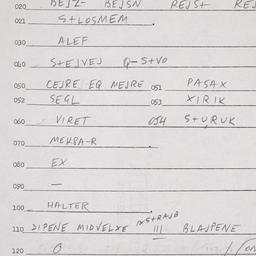 020 BEJZ- BEJSN REJS+
021 S+LOSMEM
030 ALEF
040 S+EJVEJ Q-S+VO
050 CEJRE EQ NEJRE 051 PASAX
052 SEGL 053 XIRIK
060 VIRET 054 S+URUK
070 MEKPA-R
080 EX
090 —
100 HALTER
110 DIPENE MIDVELXE IXS+RAJB 111 BLAJPENE
120 O